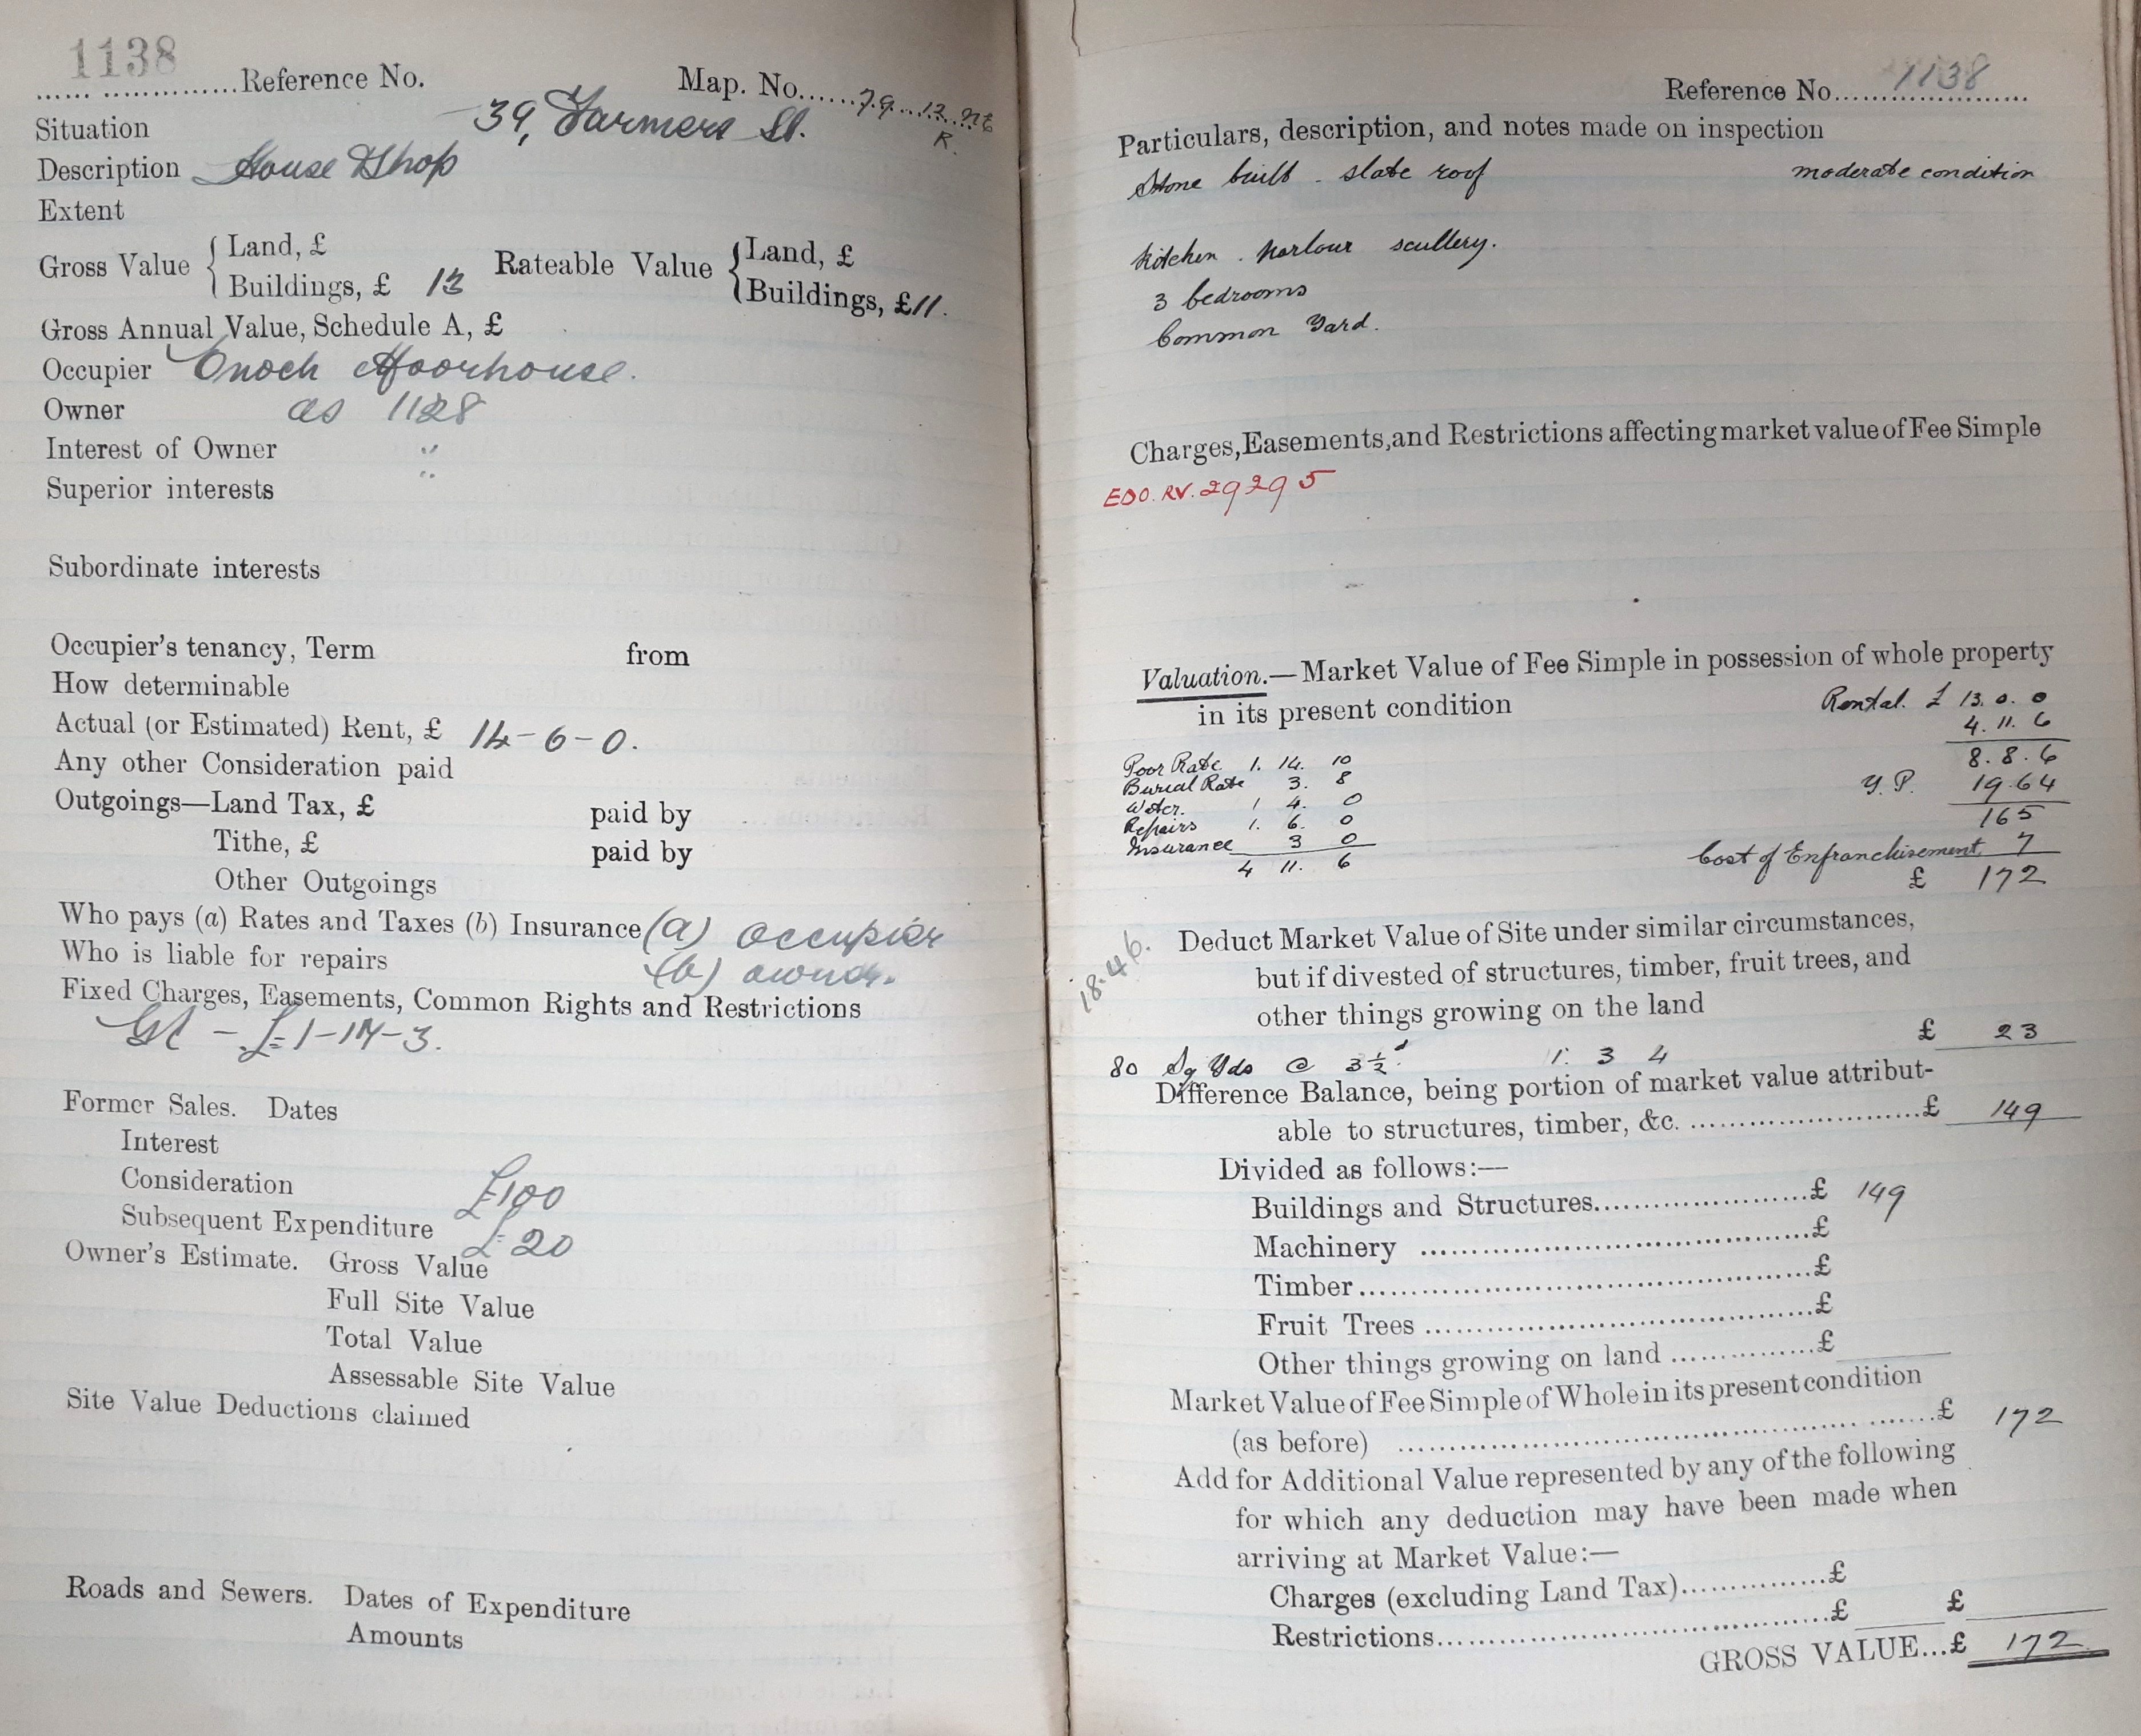 1138
...... ..............Reference No. Map. No......79..12..NE
R.
Situation 39, Farmers St.
Description House & Shop
Extent
Gross Value { Land, £ Rateable Value { Land, £
Buildings, £ 13 Buildings, £ 11.
Gross Annual Value, Schedule A, £
Occupier Enoch Moorhouse.
Owner as 1128
Interest of Owner "
Superior interests "
Subordinate interests
Occupier's tenancy, Term from
How determinable
Actual (or Estimated) Rent, £ 14-6-0.
Any other Consideration paid
Outgoings—Land Tax, £ paid by
Tithe, £ paid by
Other Outgoings
Who pays (a) Rates and Taxes (b) Insurance (a) occupier
Who is liable for repairs (b) owner.
Fixed Charges, Easements, Common Rights and Restrictions
£1-14-3.
Former Sales. Dates
Interest
Consideration £100
Subsequent Expenditure £20
Owner's Estimate. Gross Value
Full Site Value
Total Value
Assessable Site Value
Site Value Deductions claimed
Roads and Sewers. Dates of Expenditure
Amounts
Reference No. 1138
Particulars, description, and notes made on inspection
Stone built . slate roof moderate condition
Kitchen . Parlour scullery.
3 bedrooms
Common Yard.
Charges, Easements, and Restrictions affecting market value of Fee Simple
EDO. RV. 29295
Valuation.—Market Value of Fee Simple in possession of whole property
in its present condition Rental. £ 13. 0. 0
4. 11. 6
Poor Rate. 1. 14. 10 8. 8. 6
Burial Rate 3. 8 Y.P. 19.64
Water. 1 4. 0 165
Repairs 1. 6. 0
Insurance 3 0 Cost of Enfranchisement 7
4 11. 6 £ 172
18.46.
Deduct Market Value of Site under similar circumstances,
but if divested of structures, timber, fruit trees, and
other things growing on the land
£ 23
80 Sq Yds @ 3½d. 1. 3 4
Difference Balance, being portion of market value attribut-
able to structures, timber, &c. .......................£ 149
Divided as follows:—
Buildings and Structures......................£ 149
Machinery ......................................£
Timber............................................£
Fruit Trees .....................................£
Other things growing on land ...............£
Market Value of Fee Simple of Whole in its present condition
(as before) ..........................................£ 172
Add for Additional Value represented by any of the following
for which any deduction may have been made when
arriving at Market Value:—
Charges (excluding Land Tax)...............£
Restrictions......................................£ £
GROSS VALUE...£ 172